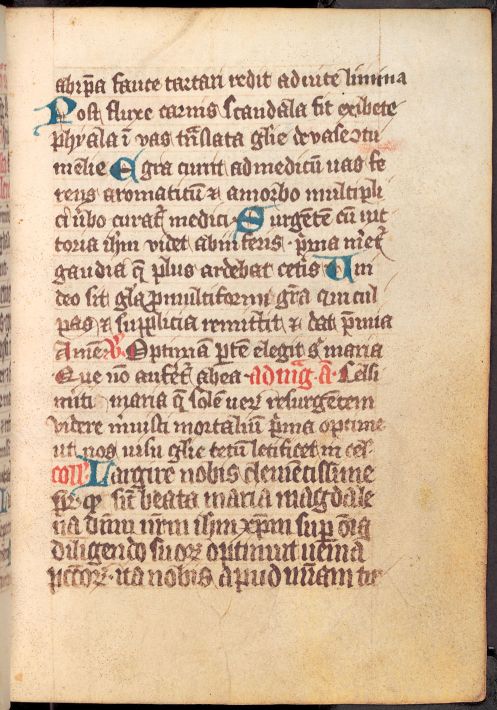 ab ip̄a fauce tartari redit ad uite limina
Post fluxe carnis scandala fit ex lebete
phyala ī vas trāslata glīe de vase cōtu
melie Egra curit ad medicū uas fe
rens aromaticū ⁊ a morbo multipli
ci ūbo curat᷑ medici Surgētē cū uic
toria ihm videt ab inferis · p̄ma meret᷑
gaudia q̄ plus ardebat cet̄is Uni
deo sit glā p multiformi grā qui cul
pas ⁊ supplicia remittit ⁊ dat p̄mia
Amen ℣. Optimam ꝑtē elegit s̄ maria
Que nō aufert᷑ ab ea · ad mag̅ a̅ · Celsi
meriti maria q̄ solē uerū resurgētem
videre meruisti mortaliū p̄ma optine
ut nos uisu glīe tecū letificet in cel
coll̄ Largire nobis clemētissime
pr̄ qͥ sic̄ beata maria magdale
na dn̄m nr̄m ihm xp̄m suꝑ om̄ia
diligendo suoꝝ optinuit ueniā
pccōꝝ · ita nobis apud miām tu